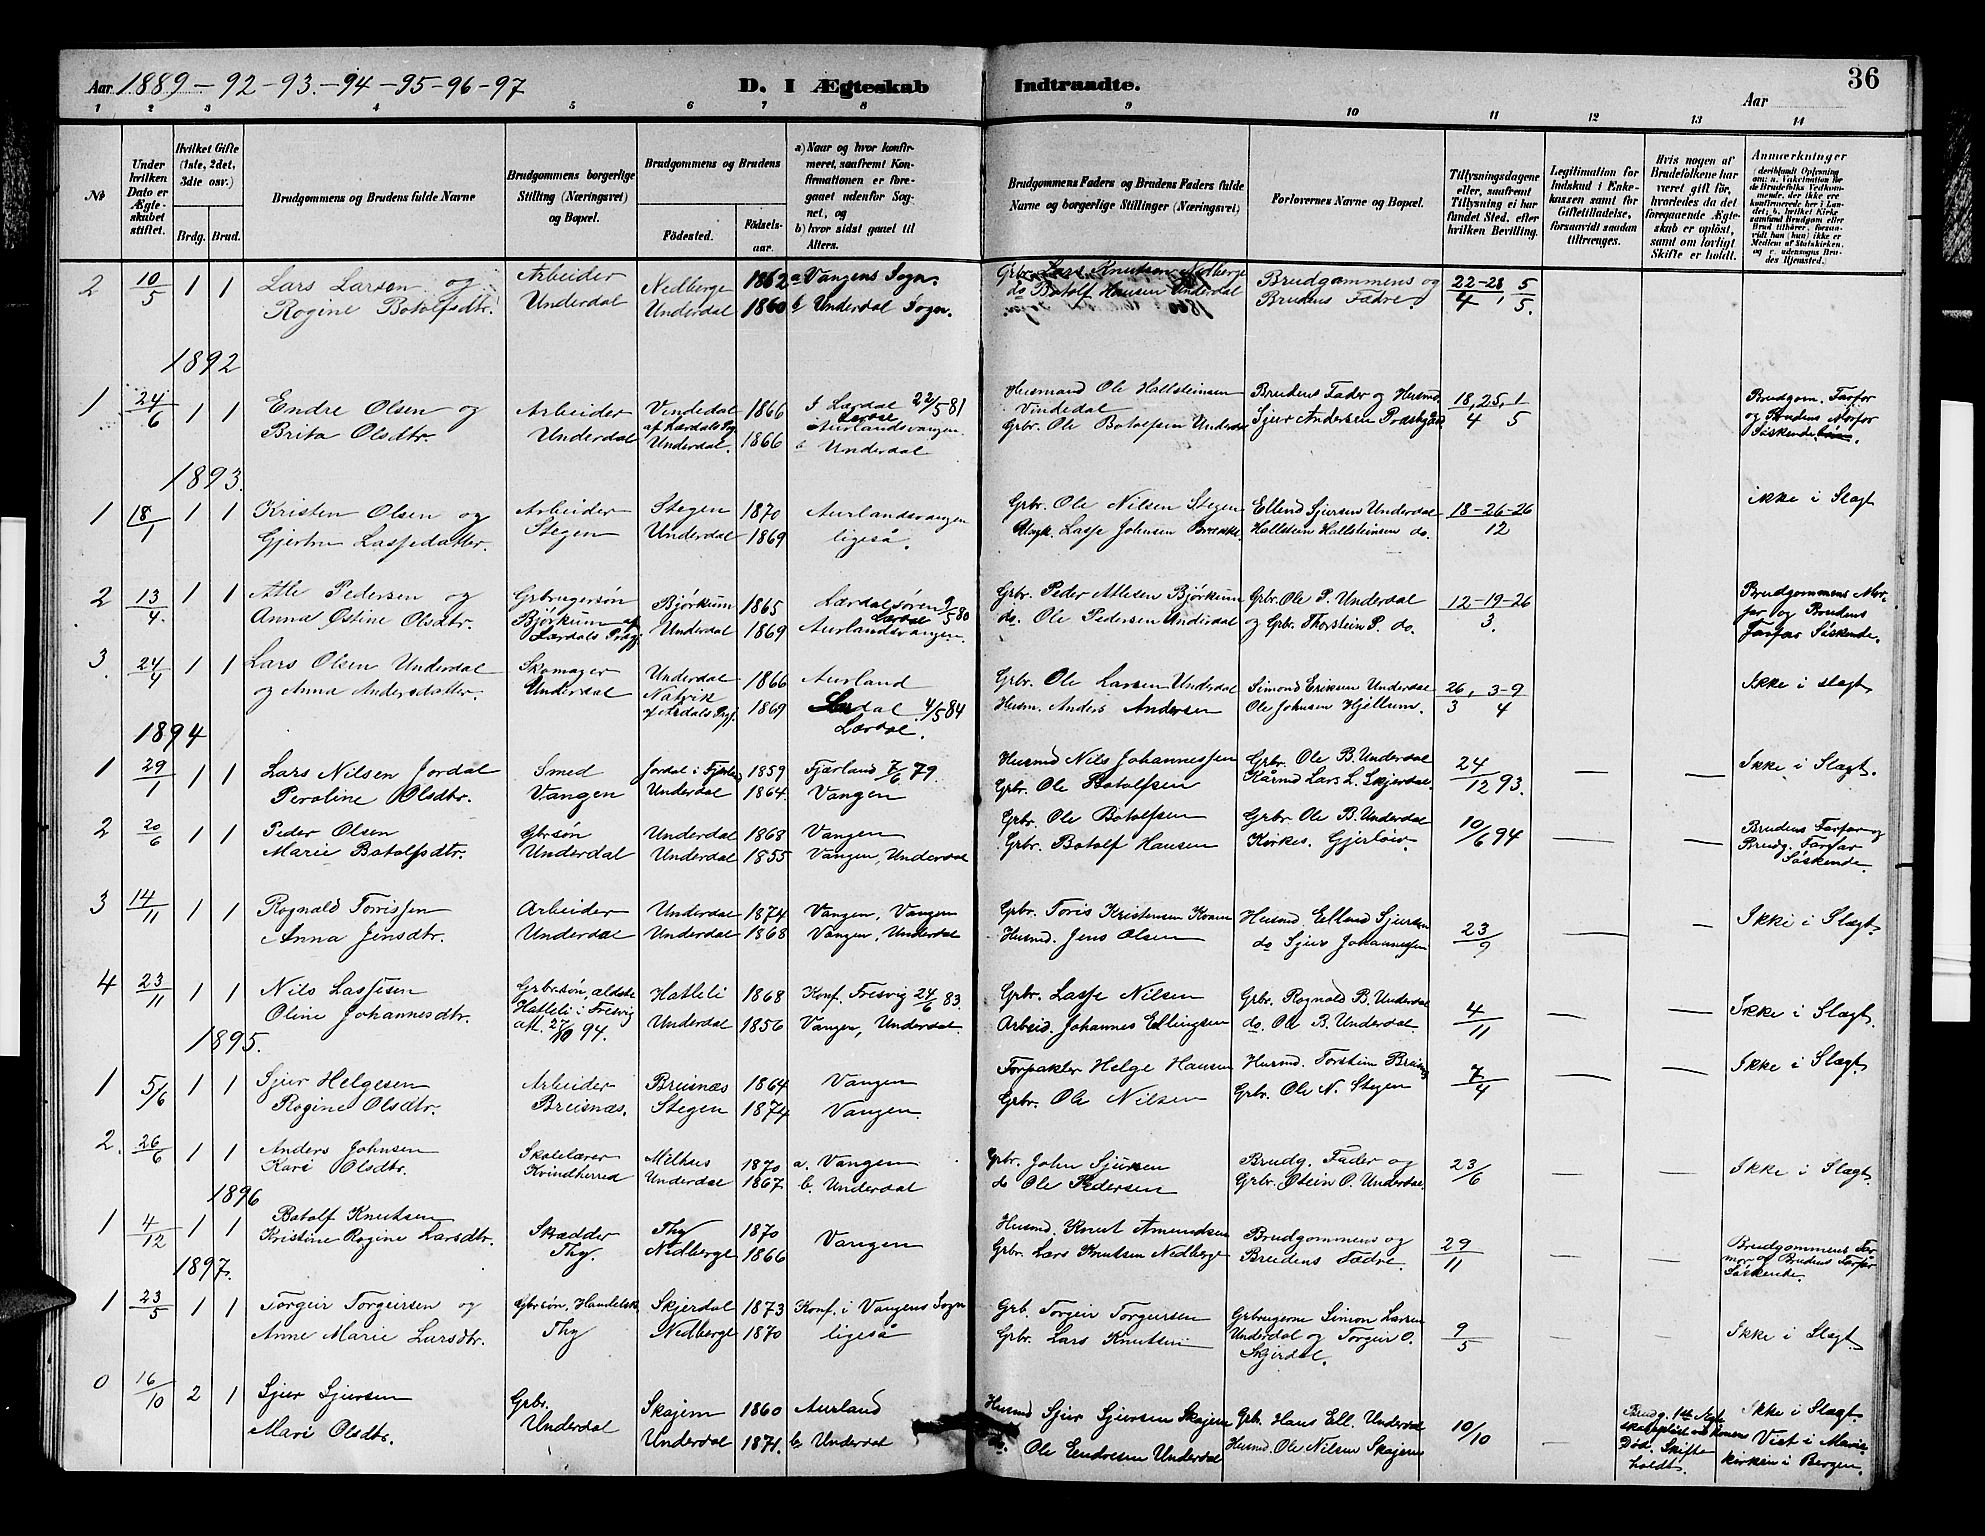 Aar 1889 - 92 - 93. - 94 - 95 - 96 - 97
D. I Ægteskab Indtraadte.
Aar
36
1 2 3 4 5 6 7 8 9 10 11 12 13 14
№
Under hvilken Dato er Ægteskabet stiftet.
Hvilket Gifte (1ste, 2det, 3die osv.)
Brdg. Brud.
Brudgommens og Brudens fulde Navne
Brudgommens borgerlige Stilling (Næringsvei) og Bopæl.
Brudgommens og Brudens
Födested. Födselsaar.
a) Naar og hvor konfirmeret, saafremt Konfirmationen er foregaaet udenfor Sognet, og
b) hvor sidst gaaet til Alters.
Brudgommens Faders og Brudens Faders fulde Navne og borgerlige Stillinger (Næringsvei)
Forlovernes Navne og Bopæl.
Tillysningsdagene eller, saafremt Tillysning ei har fundet Sted, efter hvilken Bevilling.
Legitimation for Indskud i Enkekassen samt for Giftetilladelse, forsaavidt saadan tiltrænges.
Hvis nogen af Brudefolkene har været gift för, hvorledes da det foregaaende Ægteskab er oplöst, samt om lovligt Skifte er holdt.
Anmærkninger (deriblandt Oplysning om: a. Vakcination for de Brudefolks Vedkommende, der ikke ere konfirmerede her i Landet; b. hvilket Kirkesamfund Brudgom eller Brud tilhörer, forsaavidt han (hun) ikke er Medlem af Statskirken. og c. udensogns Brudes Hjemsted.)
2 10/5 1 1 Lars Larsen og Arbeider Nedberge 1862 a Vangens Sogn. Grbr. Lars Knutsen Nedberge Brudgommens og 22-28 5
Rogine Botolfsdtr. Underdal Underdal 1860 b Underdal Sogn. do Botolf Hansen Underdal Brudens Fædre. 4 5.
1892
1 24/6 1 1 Endre Olsen og Arbeider Vindedal 1866 I Lærdal 22/5 81 Husmand Ole Hallsteinsen Brudens Fader og Husmd 18, 25, 1 Brudgom. Farfor
af Lærdals Prg. Lærdal Vindedal og Brudens Morfor
Brita Olsdtr. Underdal Underdal. 1866 Aurlandsvangen. Grbr. Ole Botolfsen Underdal Sjur Andersen 4 5 Söskende.
b Underdal
1893.
1 18/1 1 1 Kristen Olsen og Arbeider Stegen 1870 Aurlandsvangen Grbr. Ole Nilsen Stegen Ellend Sjursen Underdal 18-26-26 ikke i Slagt
Gjertru Lassedatter. Stegen Underdal 1869 ligeså. Lasse Johnsen Brække Hallstein Hallsteinsen do. 12
2 13/4. 1 1 Atle Pedersen og Grbrugersön Bjørkum 1865 Lærdalsøren 9/5 80 Grbr. Peder Atlesen Bjørkum Grbr. Ole P. Underdal 12-19-26 Brudgommens Mor-
Anna Østine Olsdtr. Bjørkum af Lærdals Prgj Underdal 1869 Lærdal Aurlandsvangen. do. Ole Pedersen Underdal og Grbr. Thorstein P. do. 3. far og Brudens
Farfar Söskende.
3. 24/4 1 1 Lars Olsen Underdal Skomager Underdal 1866 Aurland Grbr. Ole Larsen Underdal Simond Eriksen Underdal 26, 3-9 Ikke i slagt.
og Anna Andersdatter. Underdal Natvik af Årdals Prgj. 1869 Lærdal. 4/5 84 Husm. Anders Andersen Ole Johnsen Hjøllum. 3 4
Lærdal.
1894
1 29/1 1 1 Lars Nilsen Jordal Smed Jordal i Fjærland 1859 Fjærland 7/6 79. Husmd Nils Johannessen Grbr. Ole B. Underdal 24 Ikke i Slagt.
Peroline Olsdtr. Vangen Underdal 1864. Vangen Grbr. Ole Botolfsen Kårmd Lars L. Skjerdal. 12 93.
2 20/6 1 1 Peder Olsen Gbrsøn Underdal 1868 Vangen Grbr. Ole Botolfsen Grbr Ole B. Underdal 10/6 94 Brudens Farfar og
Marie Botolfsdtr. Underdal Underdal 1855 Vangen, Underdal Grbr. Botolf Hansen Kirkes. Gjerløv. Brudg. Farfar
Söskende.
3 14/11 1 1 Rognald Torrissen Arbeider Underdal 1874 Vangen, Vangen Grbr. Toris Kristensen Kvam Husmd Ellend Sjursen 23 Ikke i Slægt.
Anna Jensdtr. Underdal Underdal 1868 Vangen, Underdal Husmd. Jens Olsen do Sjur Johannessen 9
4 23/11 1 1 Nils Lassesen Grbr.søn, ældste Hatleli 1868 Konf. Fresvig 24/6 83. Grbr. Lasse Nilsen Grbr. Rognald B. Underdal 4 Ikke i Slagt.
Hatleli i Fresvig
Oline Johannesdtr. att. 27/10 94. Underdal 1856 Vangen, Underdal. Arbeid. Johannes Ellingsen do. Ole B. Underdal 11
1895.
1 5/6 1 1 Sjur Helgesen Arbeider Breisnæs 1864 Vangen Forpakter Helge Hansen Husmd. Torstein 7 Ikke i Slagt.
Rogine Olsdtr. Breisnæs. Stegen 1874 Vangen. Grbr. Ole Nilsen Grbr. Ole N. Stegen 4
2. 26/6 1 1 Anders Johnsen Skolelærer Milhus 1870 a. Vangen Grbr. John Sjursen Brudg. Fader og 23 Ikke i Slægt.
Kari Olsdtr. Kvindherred Underdal 1867. b. Underdal do Ole Pedersen Grbr. Østein O. Underdal. 6
1896
1 4/12 1 1 Botolf Knutsen Skrædder Thy 1870 Husmd. Knut Amundsen Brudgommens og 29 Brudgommens Far-
Kristine Rogine Larsdtr. Thy. Nedberge 1866 Vangen Grbr. Lars Knutsen Nedberge Brudens Fædre. 11 mor og Brudens Farfar
Söskende.
1897.
1 23/5 1 1 Torgeir Torgeirsen og Gbrsøn, Handelsk. Skjerdal 1873 Konf. i Vangens Sogn Grb. Torgeir Torgeirsen Grbrugerne Simon Larsen 9 Ikke i Slagt.
Anne Marie Larsdtr. Thy Nedberge 1870 ligeså Grbr. Lars Knutsen Underdal og Torgeir O. 5
Skjerdal.
0 16/10 2 1 Sjur Sjursen Grbr. Skajem 1860 Aurland Husmd Sjur Sjursen Skajem Grb. Hans Ell. Underdal 10/10 Brudg. 1ste Ægte- Ikke i Slægt.
Mari Olsdtr. Underdal Underdal 1871. b Underdal do. Ole Endresen Underdal Husmd. Ole Nilsen Skajem skab opløst ved Konens Viet i Marie-
Död. Skifte kirken i Bergen.
holdt.